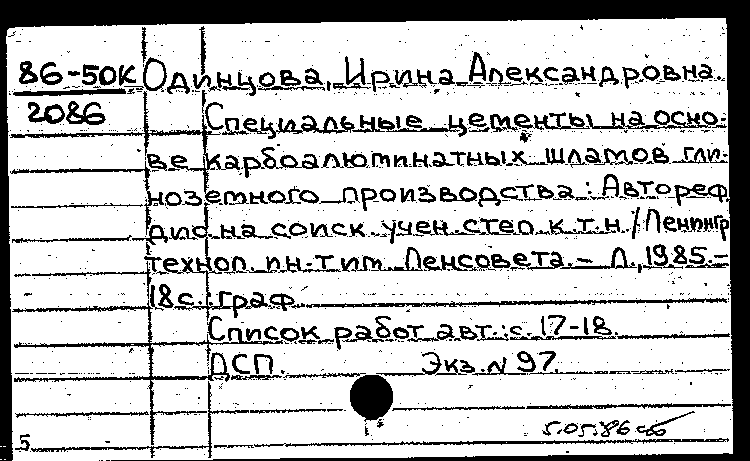 86-50К Одинцова, Ирина Александровна.
2086 Специальные цементы на осно-
ве карбоалюминатных шламов гли-
ноземного производства: Автореф
дис на соиск. учен. степ. к.т.н. / Ленингр
технол. ин-т им. Ленсовета. - Л., 1985. -
18 с.: граф.
Список работ авт.: с. 17-18.
ДСП. Экз. N 97.
5.05.86
5